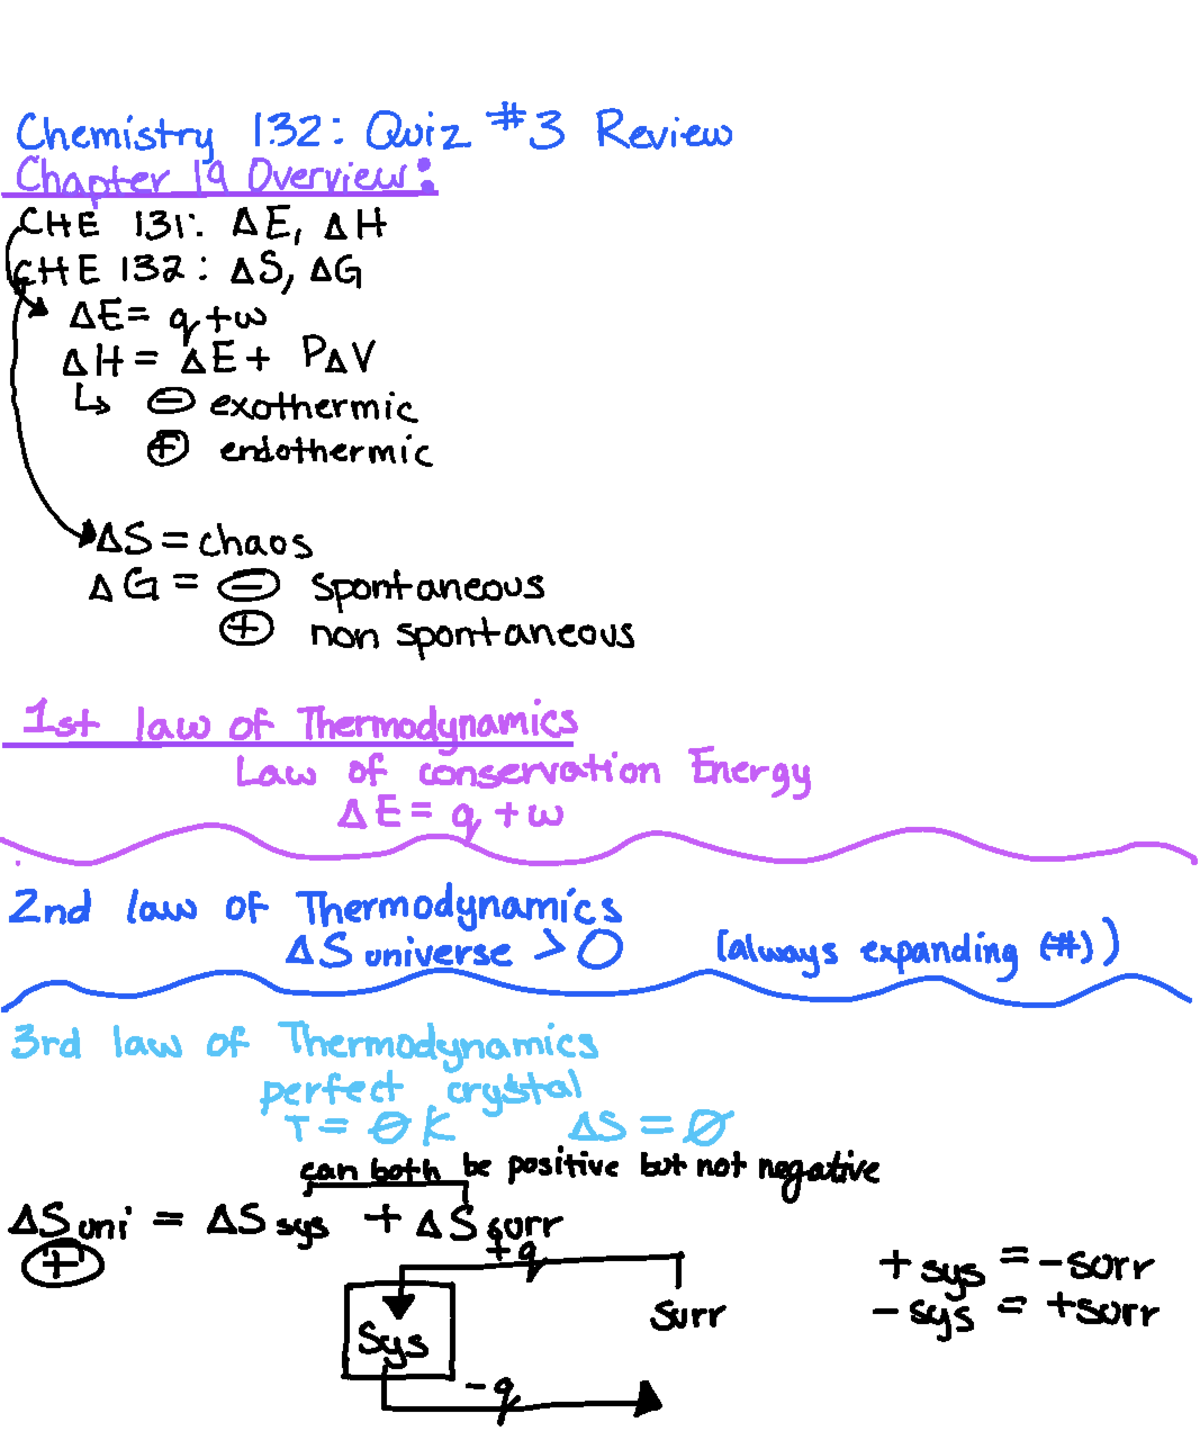 Chemistry 132: Quiz #3 Review
Chapter 19 Overview:
CHE 131: ΔE, ΔH
CHE 132: ΔS, ΔG
ΔE = q + w
ΔH = ΔE + PΔV
↳ ⊖ exothermic
⊕ endothermic
ΔS = chaos
ΔG = ⊖ spontaneous
⊕ non spontaneous
1st law of Thermodynamics
Law of conservation Energy
ΔE = q + w
2nd law of Thermodynamics
ΔS universe > 0 (always expanding (#))
3rd law of Thermodynamics
perfect crystal
T = 0 K ΔS = 0
can both be positive but not negative
ΔS uni = ΔS sys + ΔS surr
⊕
+q
+ sys = - surr
- sys = + surr
surr
Sys
-q